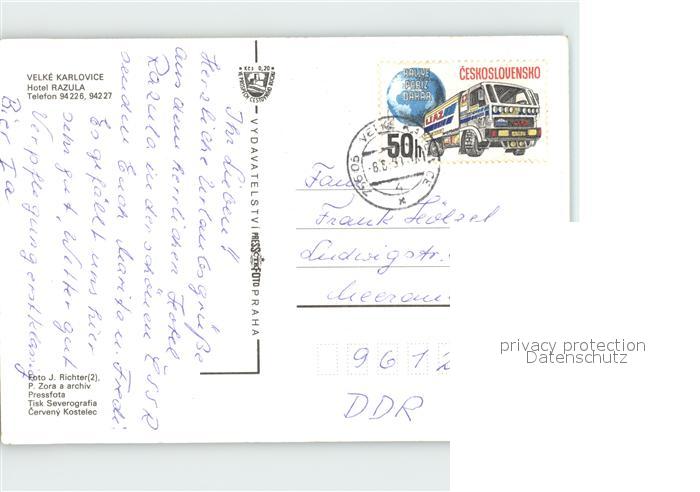 VELKÉ KARLOVICE
Hotel RAZULA
Telefon 94226, 94227
Kčs 0,20
Ihr Lieben!
Herzliche Urlaubsgrüße
aus dem herrlichen Hotel
Razula in der schönen ČSSR
senden Euch Marita u. Fredi.
Es gefällt uns hier
sehr gut, Wetter gut
Verpflegung erstklassig
Bier Ia
Foto J. Richter(2),
P. Zora a archiv
Pressfota
Tisk Severografia
Červený Kostelec
VYDAVATELSTVÍ PRESSFOTO PRAHA
ČESKOSLOVENSKO
RALLYE
PAŘÍŽ
DAKAR
LIAZ
50h
756 05 VELKÉ
Fam.
Frank Hölzel
Ludwigstr.
Meeran
9612
DDR
privacy protection
Datenschutz